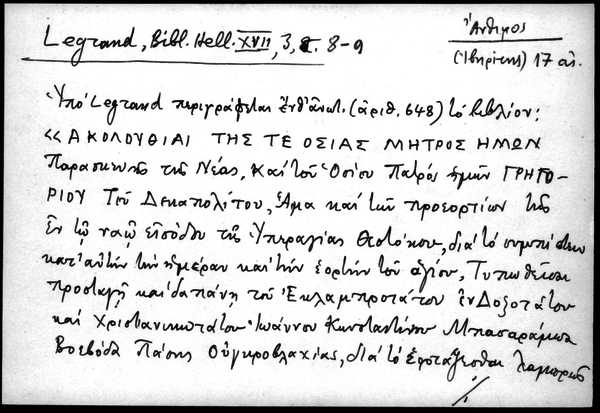 Legrand, Bibl. Hell. XVII, 3, σ. 8-9
Ἄνθιμος
(Ἰβηρίτης) 17 αἰ.
Ὑπὸ Legrand περιγράφεται ἐνθ' ἀνωτ. (ἀριθ. 648) τὸ βιβλίον:
«ΑΚΟΛΟΥΘΙΑΙ ΤΗΣ ΤΕ ΟΣΙΑΣ ΜΗΤΡΟΣ ΗΜΩΝ
Παρασκευῆς τῆς Νέας, Καὶ τοῦ Ὁσίου Πατρὸς ἡμῶν ΓΡΗΓΟ-
ΡΙΟΥ Τοῦ Δεκαπολίτου, Ἅμα καὶ τῶν προεορτίων τῆς
Ἐν τῷ ναῷ εἰσόδου τῆς Ὑπεραγίας Θεοτόκου, διὰ τὸ συμπίπτειν
κατ' αὐτὴν τὴν ἡμέραν καὶ τὴν ἑορτὴν τοῦ ἁγίου, Τυπωθεῖσαι
προσταγῇ καὶ δαπάνῃ τοῦ Ἐκλαμπροτάτου Ἐνδοξοτάτου
καὶ Χριστιανικωτάτου Ἰωάννου Κωνσταντίνου Μπασαράμπα
Βοεβόδα Πάσης Οὐγκροβλαχίας, διὰ τὸ ἑορτάζεσθαι λαμπρῶς